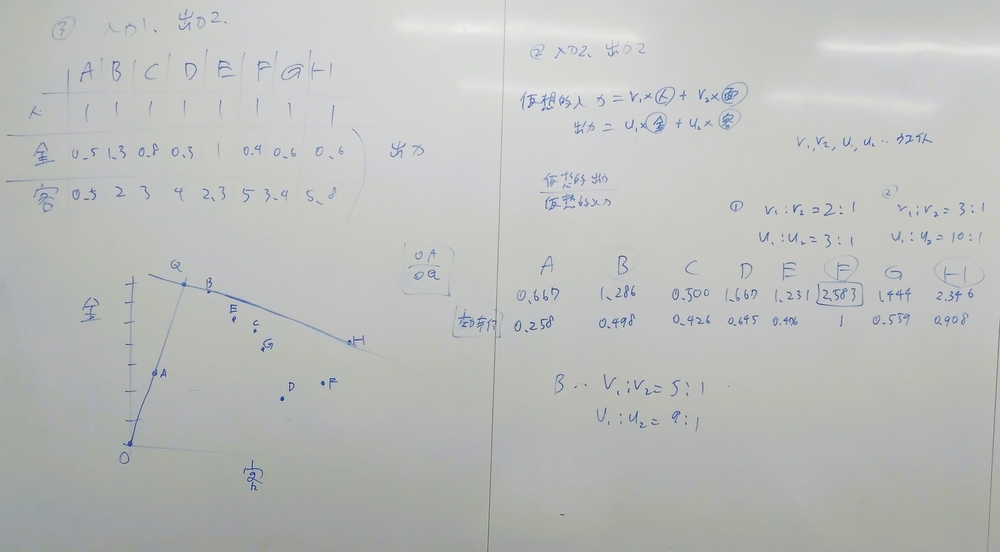 ③ 入力1、出力2.
A B C D E F G H
人 1 1 1 1 1 1 1 1
金 0.5 1.3 0.8 0.3 1 0.4 0.6 0.6
客 0.5 2 3 4 2.3 5 3.4 5.8
出力
OA
OQ
金
Q
B
E
C
G
H
A
D
F
O
② 入力2、出力2
仮想的入力 = V₁×人 + V₂×面
出力 = U₁×金 + U₂×客
V₁, V₂, U₁, U₂ ‥ ウエイト
仮想的出力
仮想的入力
① V₁:V₂ = 2:1
U₁:U₂ = 3:1
② V₁:V₂ = 3:1
U₁:U₂ = 10:1
A B C D E F G H
0.667 1.286 0.500 1.667 1.231 2.583 1.444 2.346
効率 0.258 0.498 0.426 0.645 0.406 1 0.559 0.908
B ‥ V₁:V₂ = 5:1
U₁:U₂ = 9:1